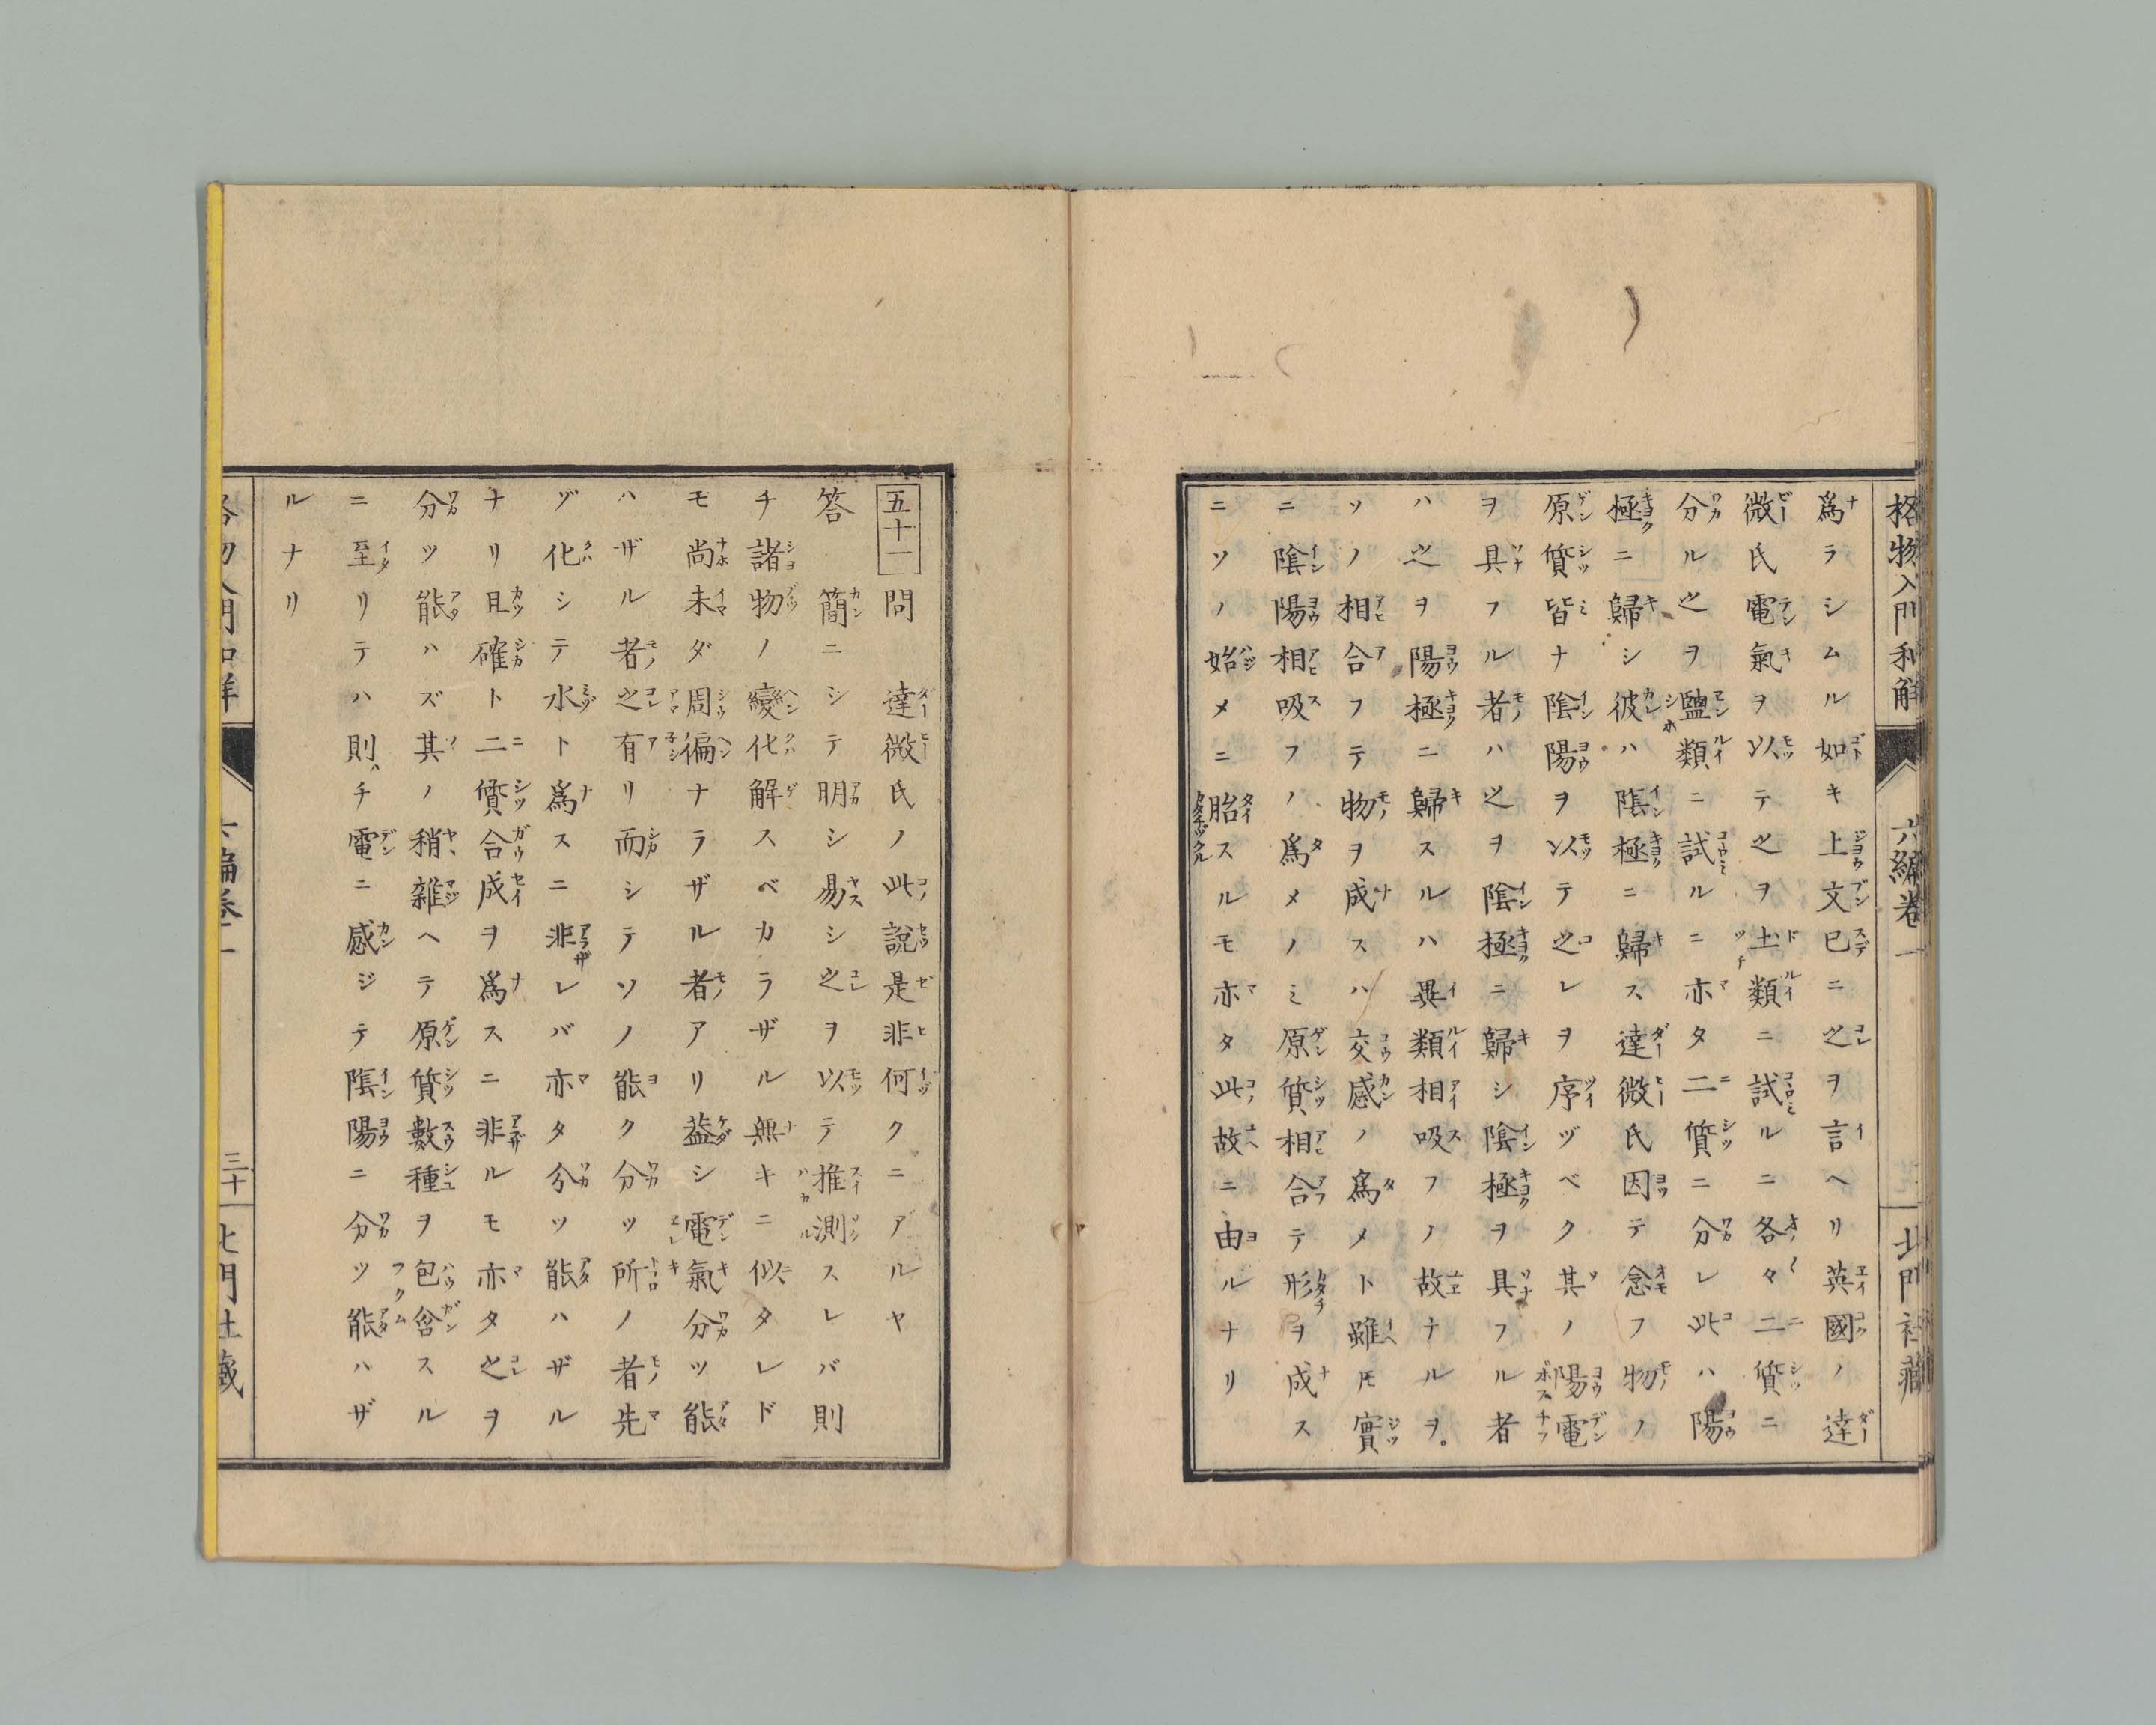 格物入門和解
六編卷一
北門社藏
爲ラシムル如キ上文已ニ之ヲ言ヘリ英國ノ達
微氏電氣ヲ以テ之ヲ土類ニ試ルニ各々二質ニ
分ル之ヲ鹽類ニ試ルニ亦タ二質ニ分レ此ハ陽
極ニ歸シ彼ハ陰極ニ歸ス達微氏因テ念フ物ノ
原質皆ナ陰陽ヲ以テ之レヲ序ヅベク其ノ陽電
ヲ具フル者ハ之ヲ陰極ニ歸シ陰極ヲ具フル者
ハ之ヲ陽極ニ歸スルハ異類相吸フノ故ナルヲ。
ソノ相合フテ物ヲ成スハ交感ノ爲メト雖𪜈實
ニ陰陽相吸フノ爲メノミ原質相合テ形ヲ成ス
ニソノ始メニ胎スルモ亦タ此故ニ由ルナリ
五十一問 達微氏ノ此說是非何クニアルヤ
答 簡ニシテ明シ易シ之ヲ以テ推測スレバ則
チ諸物ノ變化解スベカラザル無キニ似タレド
モ尚未ダ周徧ナラザル者アリ葢シ電氣分ツ能
ハザル者之有リ而シテソノ能ク分ツ所ノ者先
ヅ化シテ水ト爲スニ非レバ亦タ分ツ能ハザル
ナリ且確ト二質合成ヲ爲スニ非ルモ亦タ之ヲ
分ツ能ハズ其ノ稍雜ヘテ原質數種ヲ包含スル
ニ至リテハ則チ電ニ感ジテ陰陽ニ分ツ能ハザ
ルナリ
三十
北門社藏